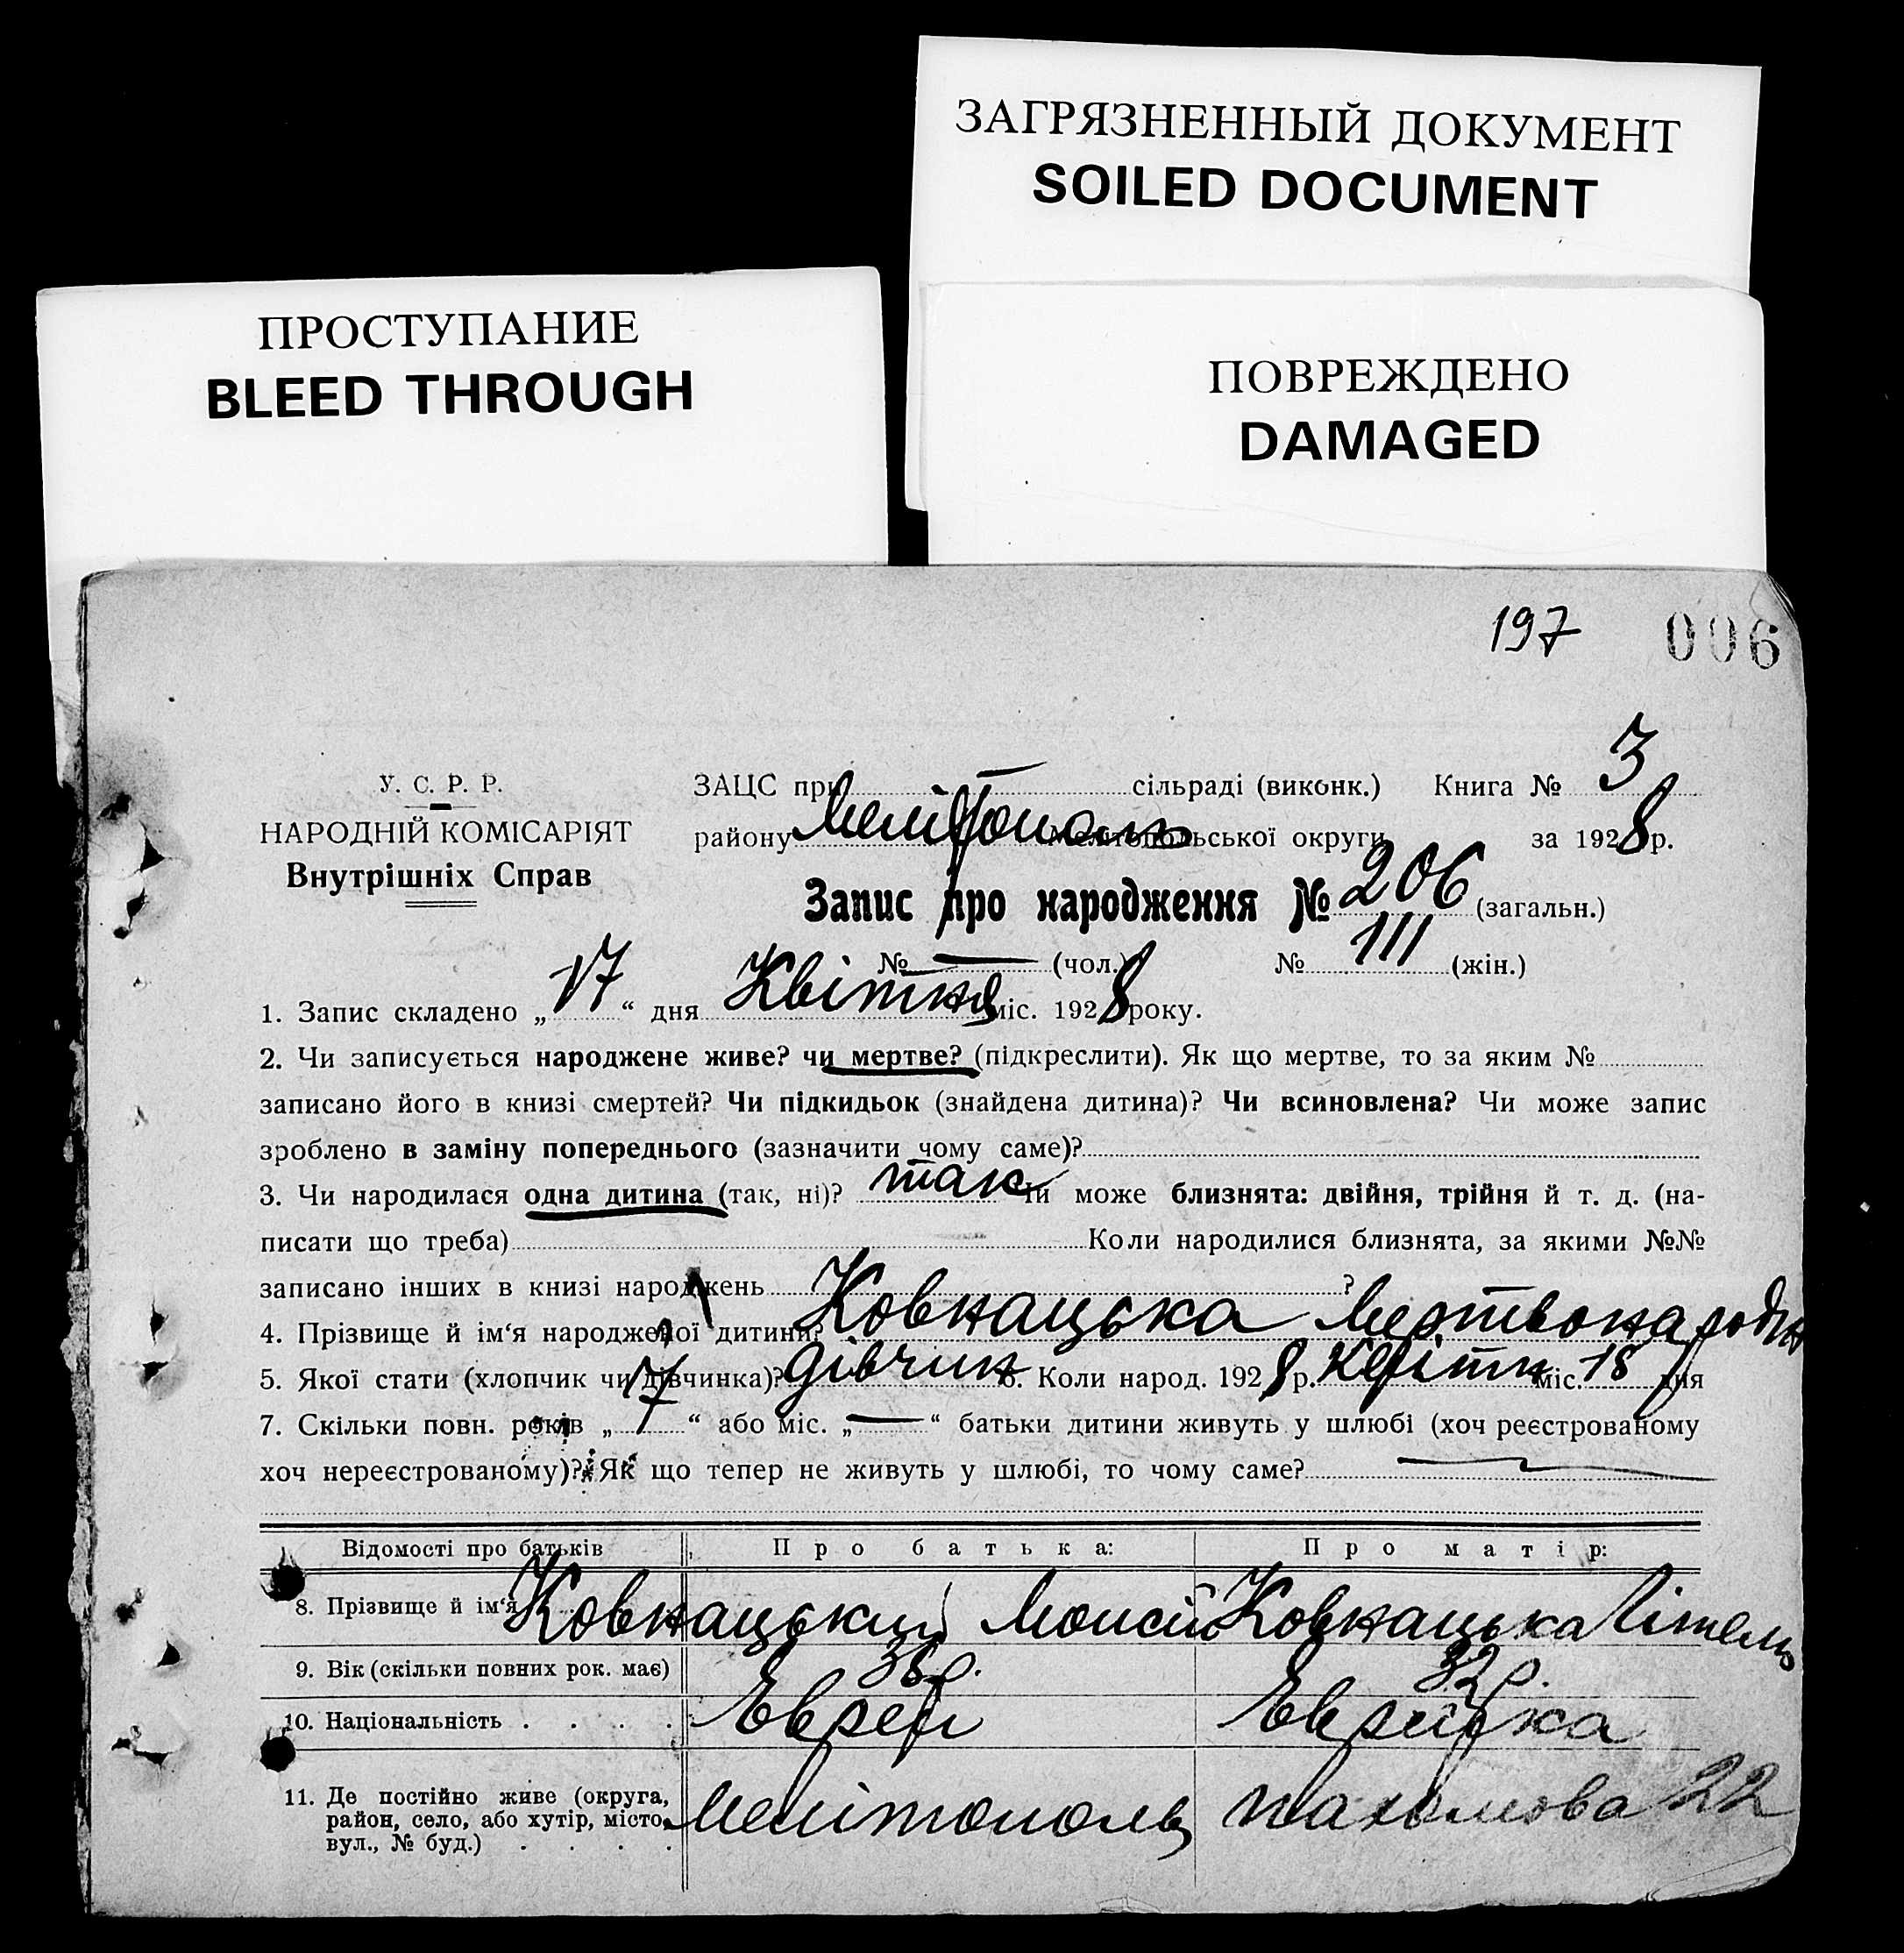 ЗАГРЯЗНЕННЫЙ ДОКУМЕНТ
SOILED DOCUMENT
ПРОСТУПАНИЕ
BLEED THROUGH
ПОВРЕЖДЕНО
DAMAGED
197 006
У. С. Р. Р.
НАРОДНІЙ КОМІСАРІЯТ
Внутрішніх Справ
ЗАЦС при — сільраді (виконк.) Книга № 3
району Мелітополь Мелітопольської округи за 1928 р.
Запис про народження № 206 (загальн.)
№ — (чол.) № 111 (жін.)
1. Запис складено „ 17 “ дня Квітня міс. 1928 року.
2. Чи записується народжене живе? чи мертве? (підкреслити). Як що мертве, то за яким №
записано його в книзі смертей? Чи підкидьок (знайдена дитина)? Чи всиновлена? Чи може запис
зроблено в заміну попереднього (зазначити чому саме)?
3. Чи народилася одна дитина (так, ні)? так чи може близнята: двійня, трійня й т. д. (на-
писати що треба) Коли народилися близнята, за якими №№
записано інших в книзі народжень ?
4. Прізвище й ім‘я народженої дитини? Ковнацька
5. Якої стати (хлопчик чи дівчинка)? дівчин 6. Коли народ. 1928 р. Квітн міс. 15 дня
7. Скільки повн. років „ 17 “ або міс. „ — “ батьки дитини живуть у шлюбі (хоч реєстрованому
хоч нереєстрованому)? Як що тепер не живуть у шлюбі, то чому саме? —
Відомості про батьків Про батька: Про матір:
8. Прізвище й ім‘я Ковнацький Мойсій Ковнацька
9. Вік (скільки повних рок. має) 38 р. 32 р.
10. Національність . . . . Еврей Еврейка
11. Де постійно живе (округа,
район, село, або хутір, місто,
вул., № буд.) . . . .
Мелітополь 22